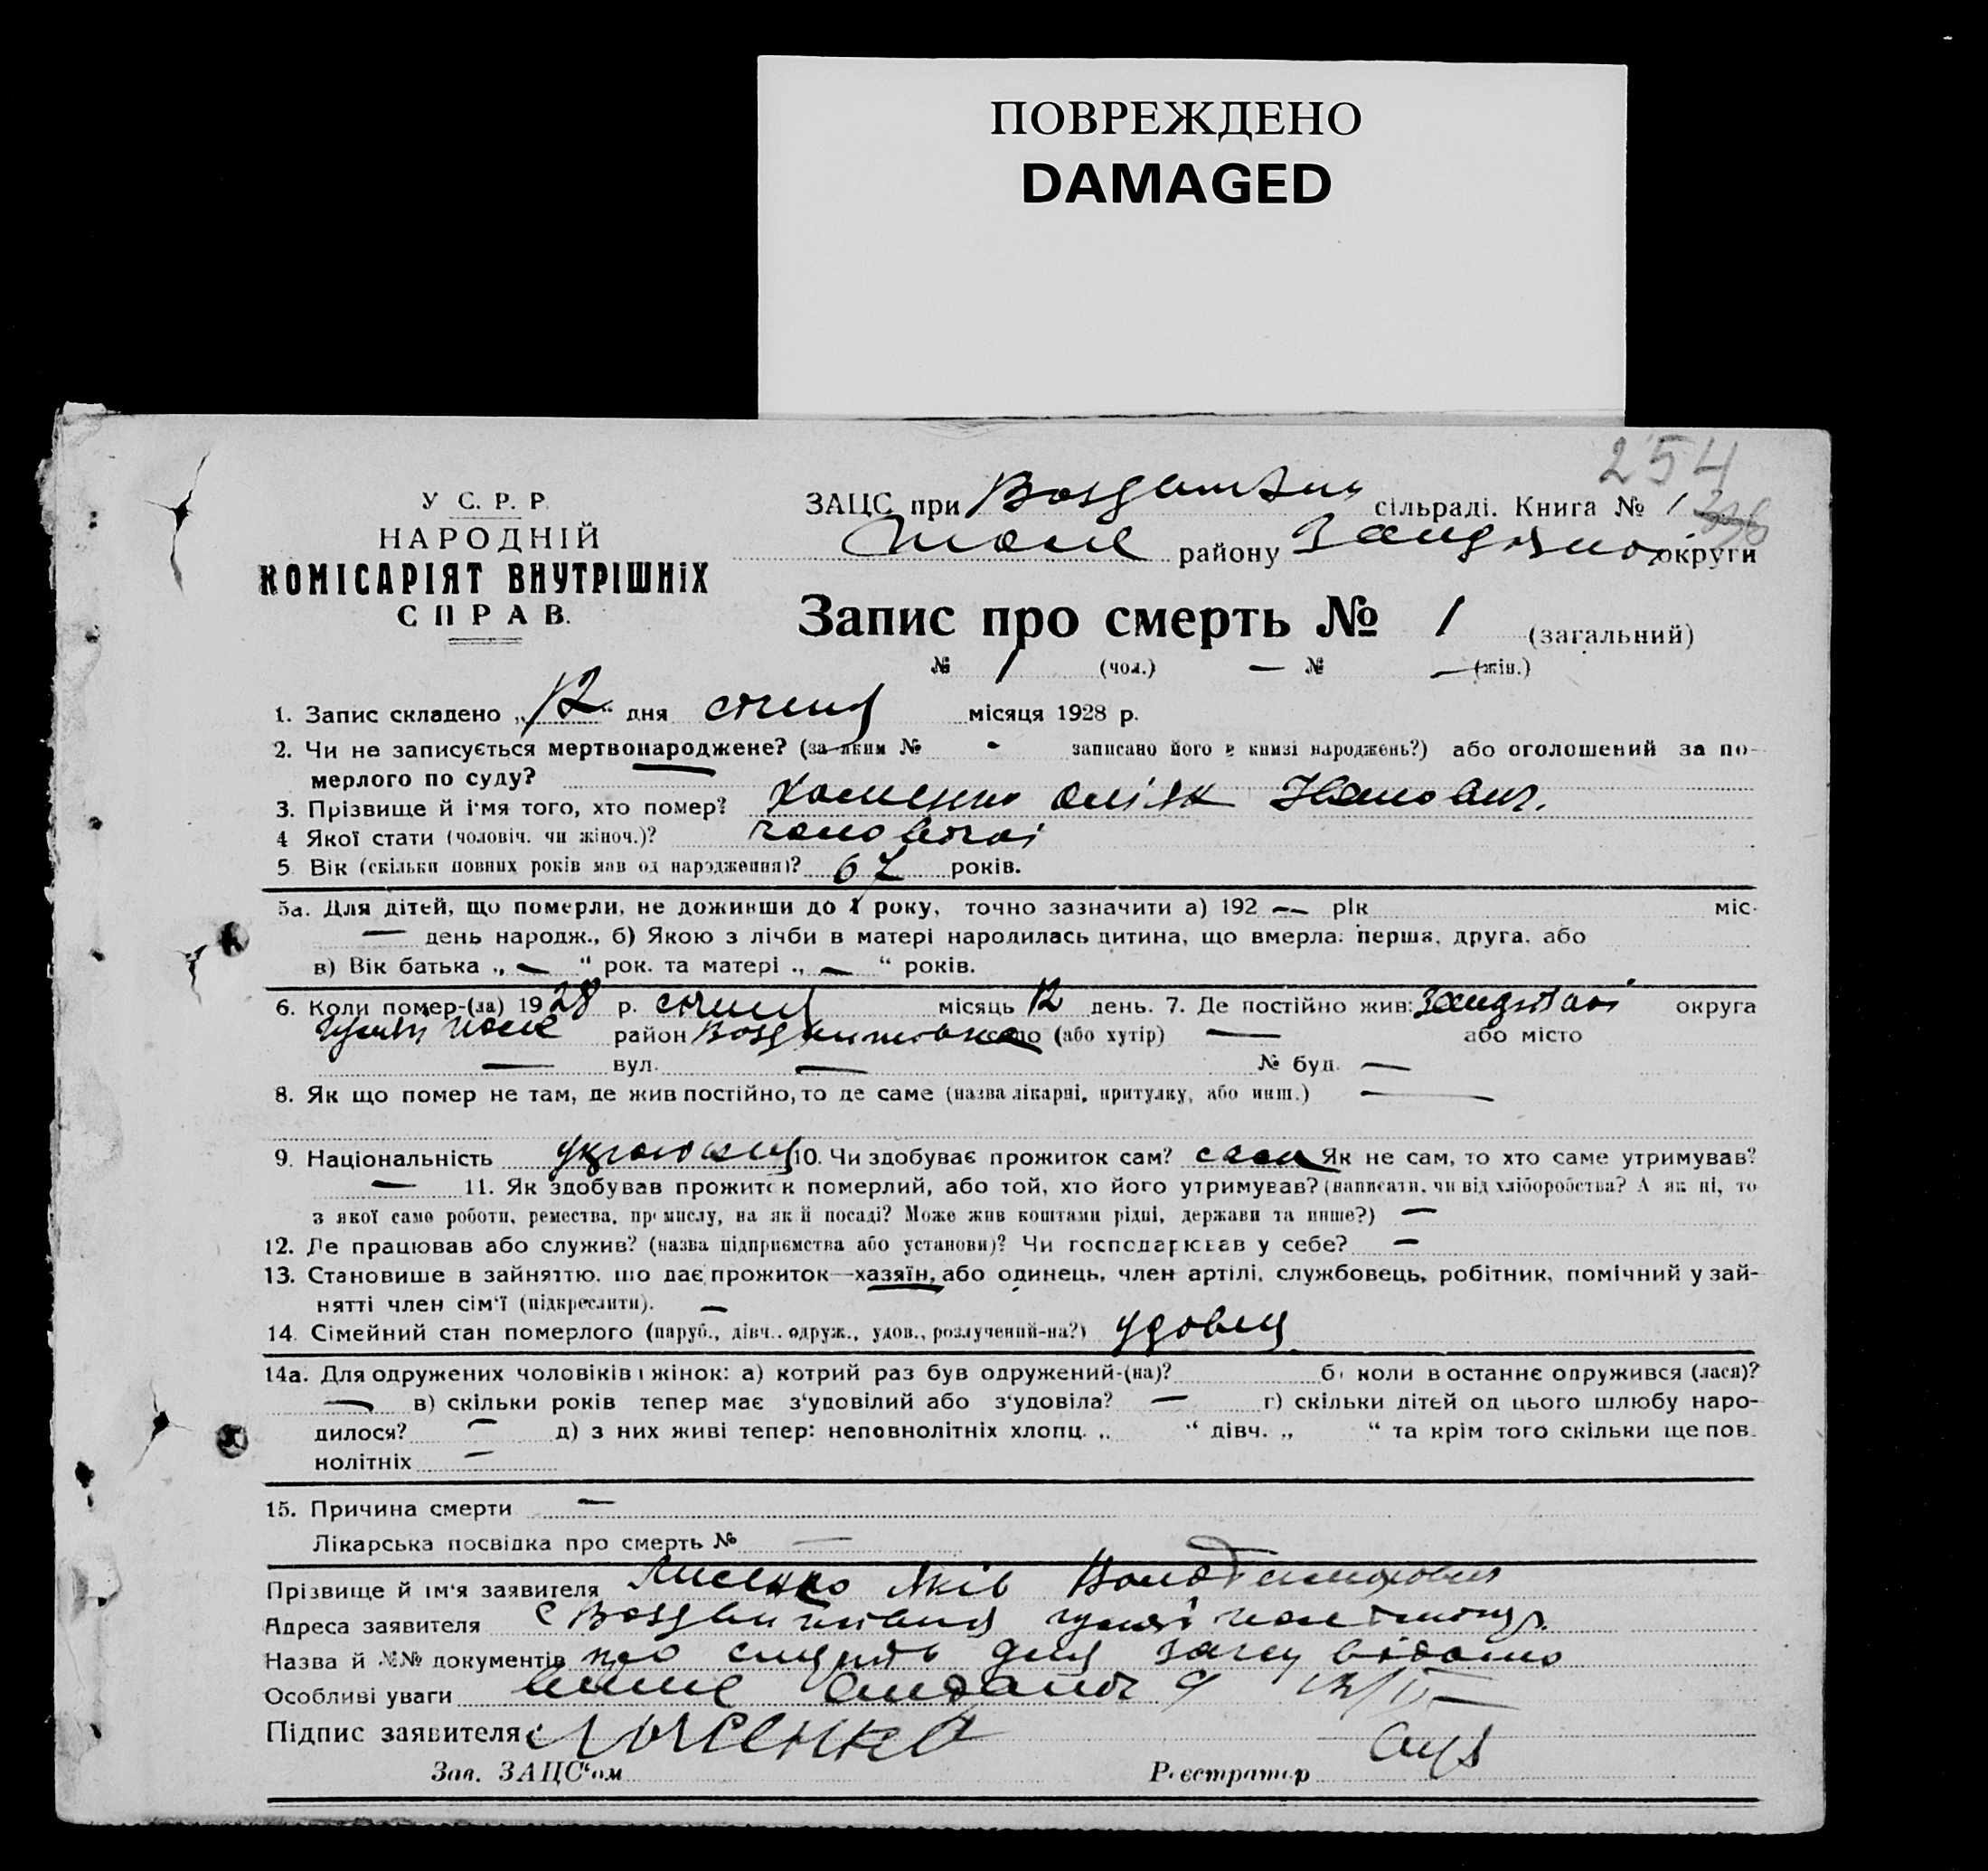 ПОВРЕЖДЕНО
DAMAGED
254
У С. Р. Р.
НАРОДНІЙ
КОМІСАРІЯТ ВНУТРІШНІХ
СПРАВ.
ЗАЦС при сільраді. Книга № 1
району округи
Запис про смерть № 1 (загальний)
№ 1 (чол.) — № — (жін.)
1. Запис складено „12“ дня січня місяця 1928 р.
2. Чи не записується мертвонароджене? (за яким № записано його в книзі народжень?) або оголошений за по-
мерлого по суду? —
3. Прізвище й ім'я того, хто помер?
4 Якої стати (чоловіч. чи жіноч.)?
5. Вік (скільки повних років мав од народження)? 67 років.
5а. Для дітей, що померли, не доживши до 1 року, точно зазначити а) 192 — рік міс.
— день народж., б) Якою з лічби в матері народилась дитина, що вмерла: перша, друга, або
в) Вік батька „ — “ рок. та матері „ — “ років.
6. Коли помер-(ла) 1928 р. січня місяць 12 день. 7. Де постійно жив: округа
район село (або хутір) — або місто
— вул. — № буд. —
8. Як що помер не там, де жив постійно, то де саме (назва лікарні, притулку, або инш.) —
9. Національність українец 10. Чи здобуває прожиток сам? сам Як не сам, то хто саме утримував?
— 11. Як здобував прожиток померлий, або той, хто його утримував? (написати, чи від хліборобства? А як ні, то
з якої саме роботи, ремества, промислу, на якій посаді? Може жив коштами рідні, держави та инше?) —
12. Де працював або служив? (назва підприємства або установи)? Чи господарював у себе? —
13. Становище в зайняттю, що дає прожиток—хазяїн, або одинець, член артілі, службовець, робітник, помічний у зай-
нятті член сім'ї (підкреслити). —
14. Сімейний стан померлого (паруб., дівч., одруж., удов., розлучений-на?) удовец
14а. Для одружених чоловіків і жінок: а) котрий раз був одружений-(на)? б) коли востаннє одружився (лася)?
— в) скільки років тепер має з'удовілий або з'удовіла? — г) скільки дітей од цього шлюбу наро-
дилося? — д) з них живі тепер: неповнолітніх хлопц. „ “ дівч. „ “ та крім того скільки ще пов.
нолітніх —
15. Причина смерти —
Лікарська посвідка про смерть № —
Прізвище й ім'я заявителя Лисенко Яків
Адреса заявителя
Назва й №№ документів про
Особливі уваги
Підпис заявителя: Лисенко
Зав. ЗАЦС'ом Реєстратор